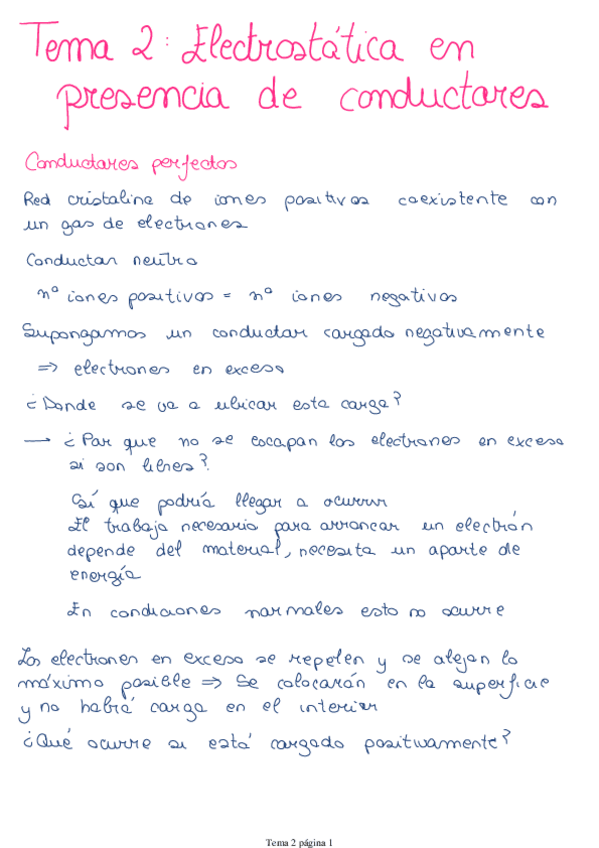 Tema 2: Electrostática en
presencia de conductores
Conductores perfectos
Red cristalina de iones positivos coexistente con
un gas de electrones
Conductor neutro
nº iones positivos = nº iones negativos
Supongamos un conductor cargado negativamente
⇒ electrones en exceso
¿Donde se va a ubicar esta carga?
→ ¿Por que no se escapan los electrones en exceso
si son libres?
Sí que podría llegar a ocurrir
El trabajo necesario para arrancar un electrón
depende del material, necesita un aporte de
energía
En condiciones normales esto no ocurre
Los electrones en exceso se repelen y se alejan lo
máximo posible ⇒ Se colocarán en la superficie
y no habrá carga en el interior
¿Qué ocurre si está cargado positivamente?
Tema 2 página 1